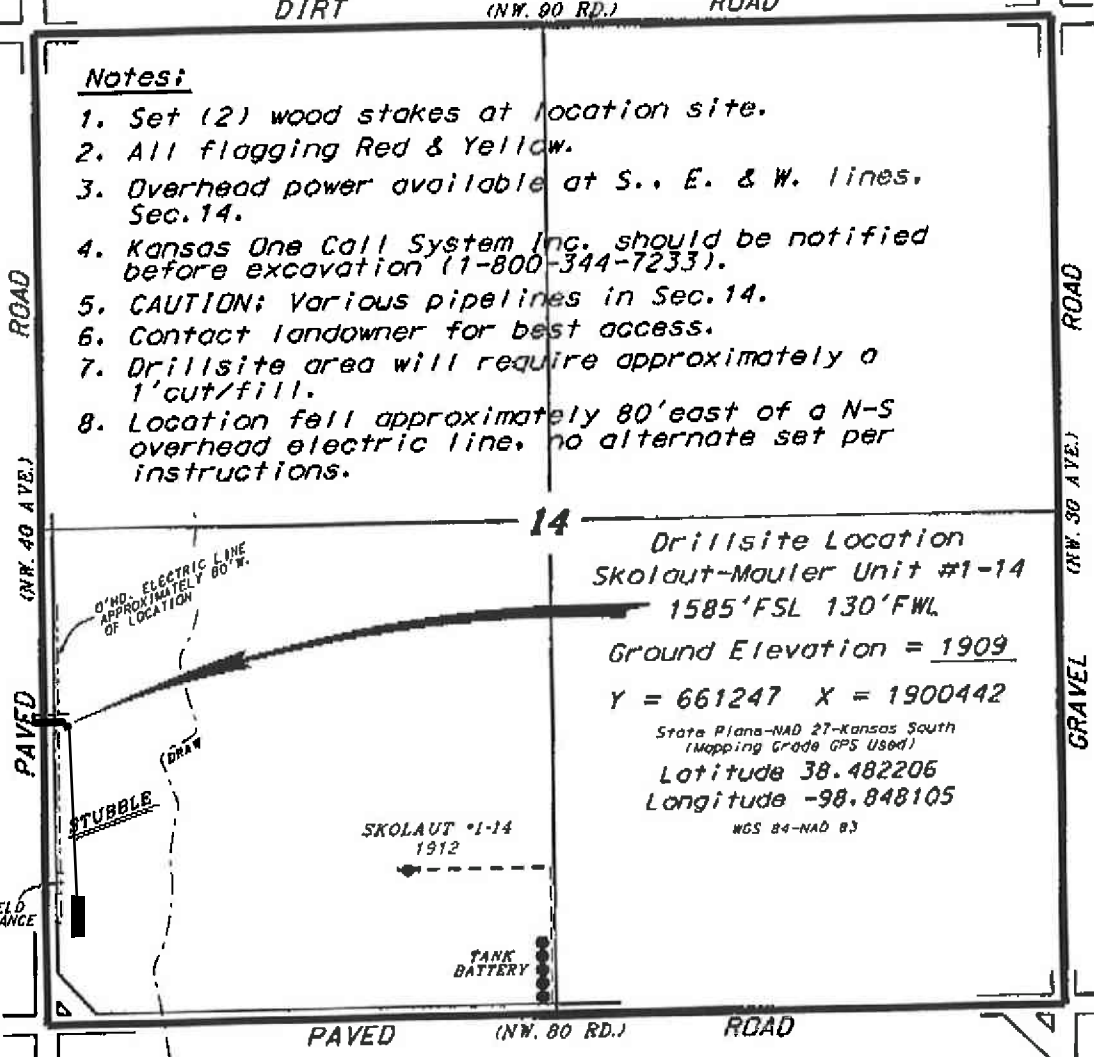 DIRT (NW. 90 RD.) ROAD
Notes:
1. Set (2) wood stakes at location site.
2. All flagging Red & Yellow.
3. Overhead power available at S., E. & W. lines,
Sec. 14.
4. Kansas One Call System Inc. should be notified
before excavation (1-800-344-7233).
5. CAUTION: Various pipelines in Sec. 14.
6. Contact landowner for best access.
7. Drillsite area will require approximately a
1'cut/fill.
8. Location fell approximately 80'east of a N-S
overhead electric line, no alternate set per
instructions.
ROAD
(NW. 40 AVE.)
PAVED
ROAD
(NW. 30 AVE.)
GRAVEL
14
O'HD. ELECTRIC LINE
APPROXIMATELY 80'W.
OF LOCATION
Drillsite Location
Skolaut-Mauler Unit #1-14
1585'FSL 130'FWL
Ground Elevation = 1909
Y = 661247 X = 1900442
State Plane-NAD 27-Kansas South
(Mapping Grade GPS Used)
Latitude 38.482206
Longitude -98.848105
WGS 84-NAD 83
(DRAW
STUBBLE
SKOLAUT #1-14
1912
TANK
BATTERY
PAVED (NW. 80 RD.) ROAD